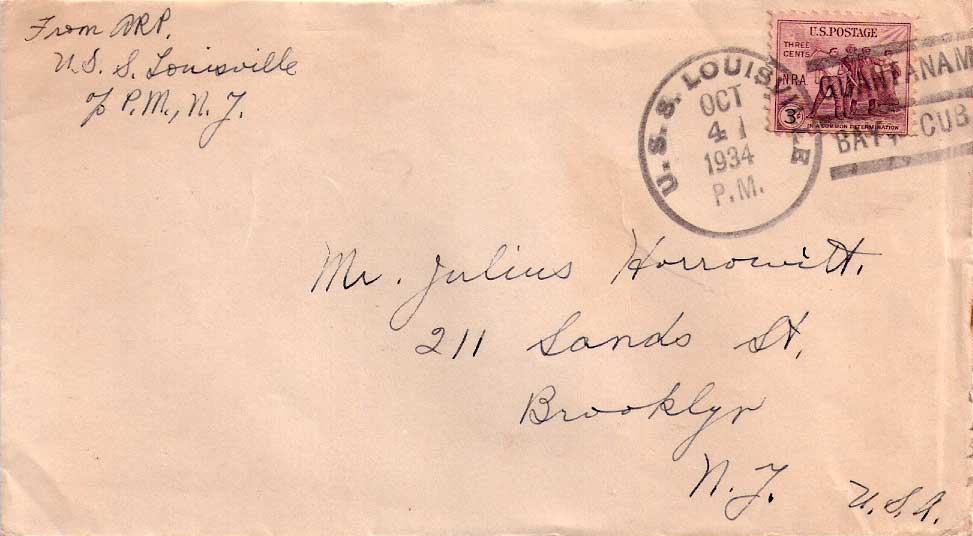 From ARP.
U.S.S. Louisville
℅ P.M., N.Y.
U.S.POSTAGE
THREE
CENTS
N.R.A.
3¢
IN A COMMON DETERMINATION
U.S.S. LOUISVILLE
OCT
4 1
1934
P.M.
GUANTANAM
BAY, CUB
Mr. Julius Horrowitt.
211 Sands St.
Brooklyn
N.Y.
U.S.A.